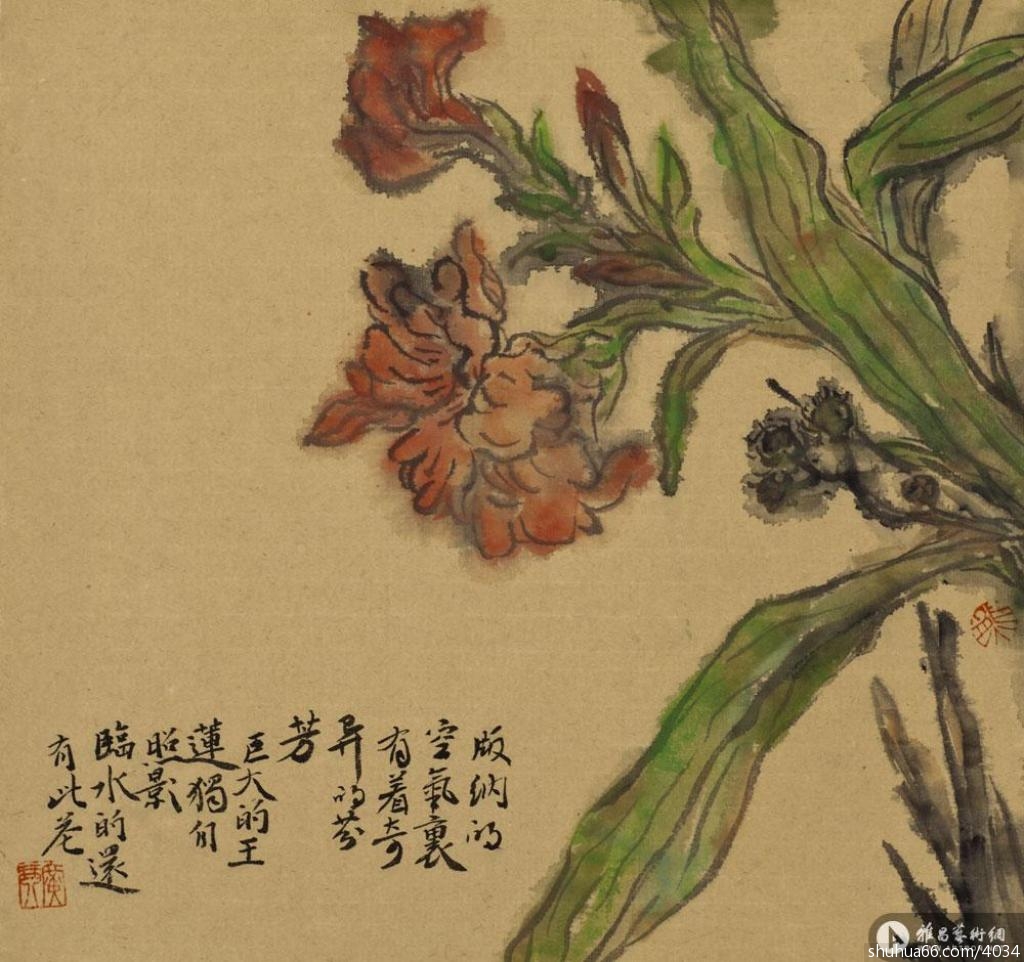 版纳的
空氣裏
有着奇
异的芬
芳
巨大的王
蓮獨自
照影
臨水的還
有此花
雅昌藝術網
shuhua66.com/4034